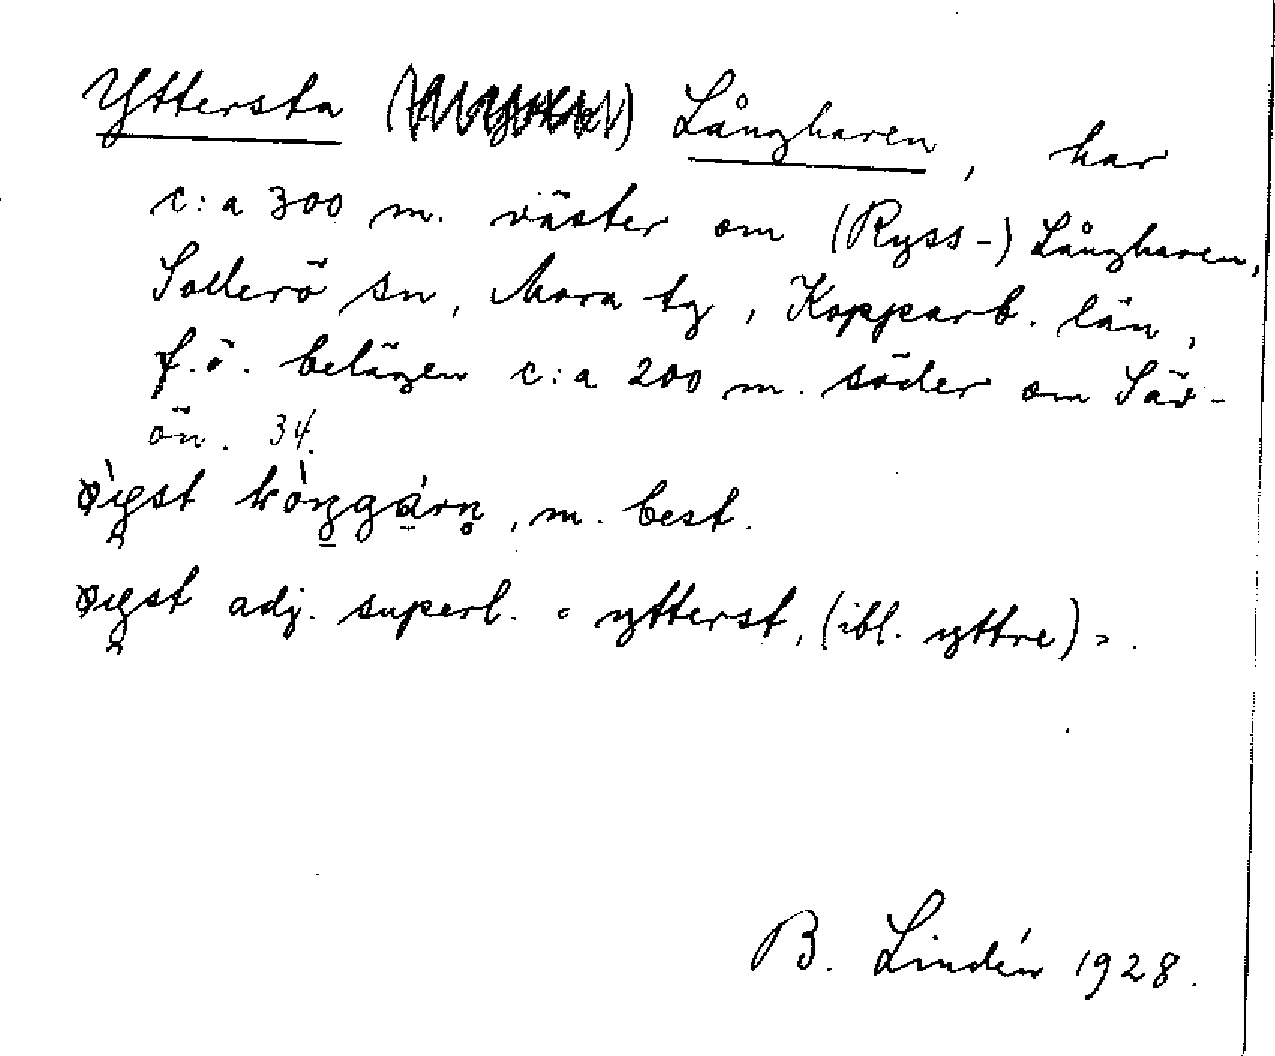 Yttersta Långharen, har
c:a 300 m. väster om (Ryss-) Långharen,
Sollerö sn, Mora tg, Kopparb. län,
f.ö. belägen c:a 200 m. söder om Säv-
ön. 34.
, m. best.
adj. superl. "ytterst, (ibl. yttre)".
B. Lindén 1928.